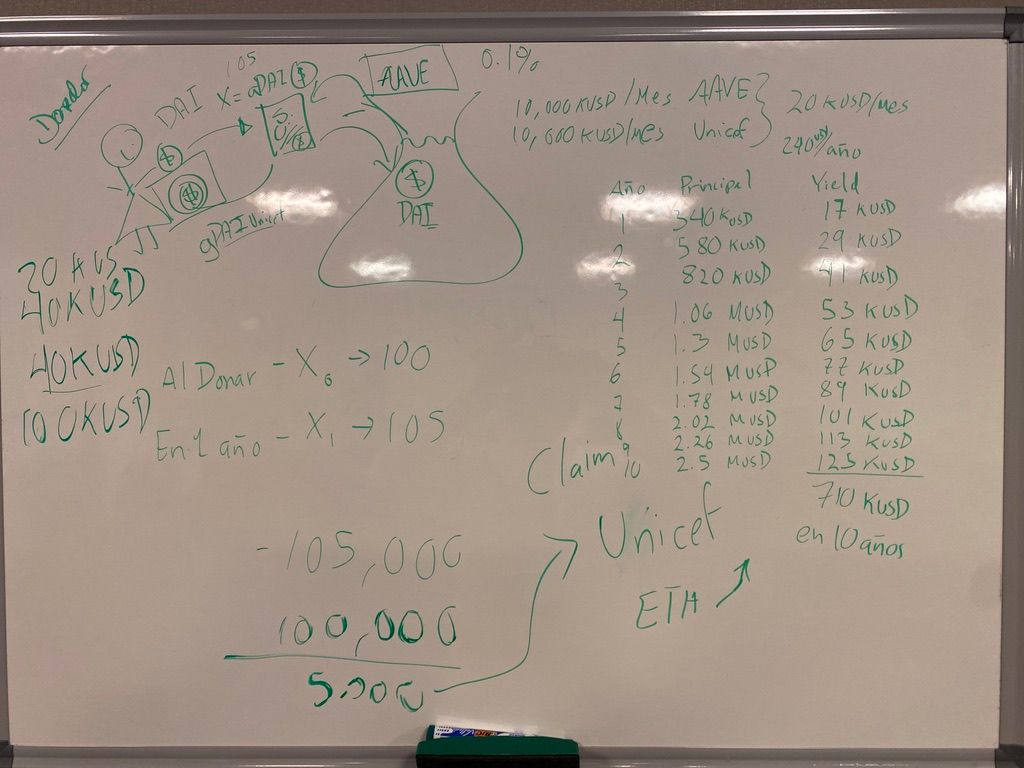 Donador
DAI
105
X=aDAI $
AAVE
0.1%
$
$
$
DAI
gDAI Unicef
10,000 KUSD/Mes AAVE
10,000 KUSD/mes Unicef
20 KUSD/mes
240 KUSD/año
Año Principal Yield
1 340 KUSD 17 KUSD
2 580 KUSD 29 KUSD
3 820 KUSD 41 KUSD
4 1.06 MUSD 53 KUSD
5 1.3 MUSD 65 KUSD
6 1.54 MUSD 77 KUSD
7 1.78 MUSD 89 KUSD
8 2.02 MUSD 101 KUSD
9 2.26 MUSD 113 KUSD
10 2.5 MUSD 125 KUSD
710 KUSD
en 10 años
20 KUS
40KUSD
40KUSD
100KUSD
Al Donar - X₀ → 100
En 1 año - X₁ → 105
Claim
-105,000
100,000
5.000
Unicef
ETH